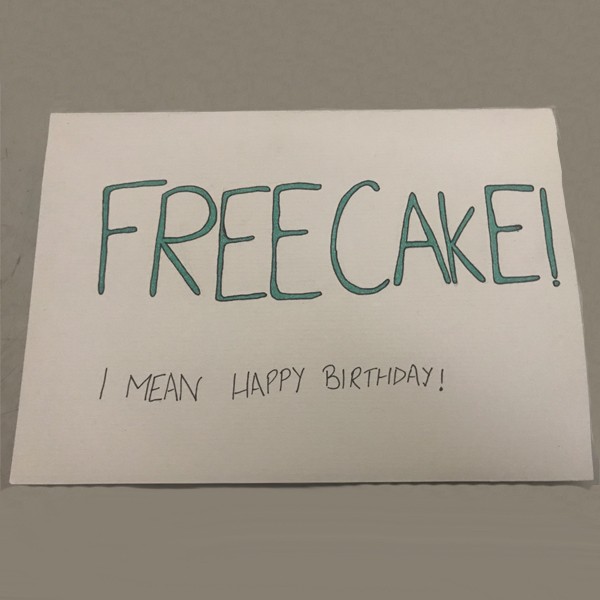 FREE CAKE!
I MEAN HAPPY BIRTHDAY!